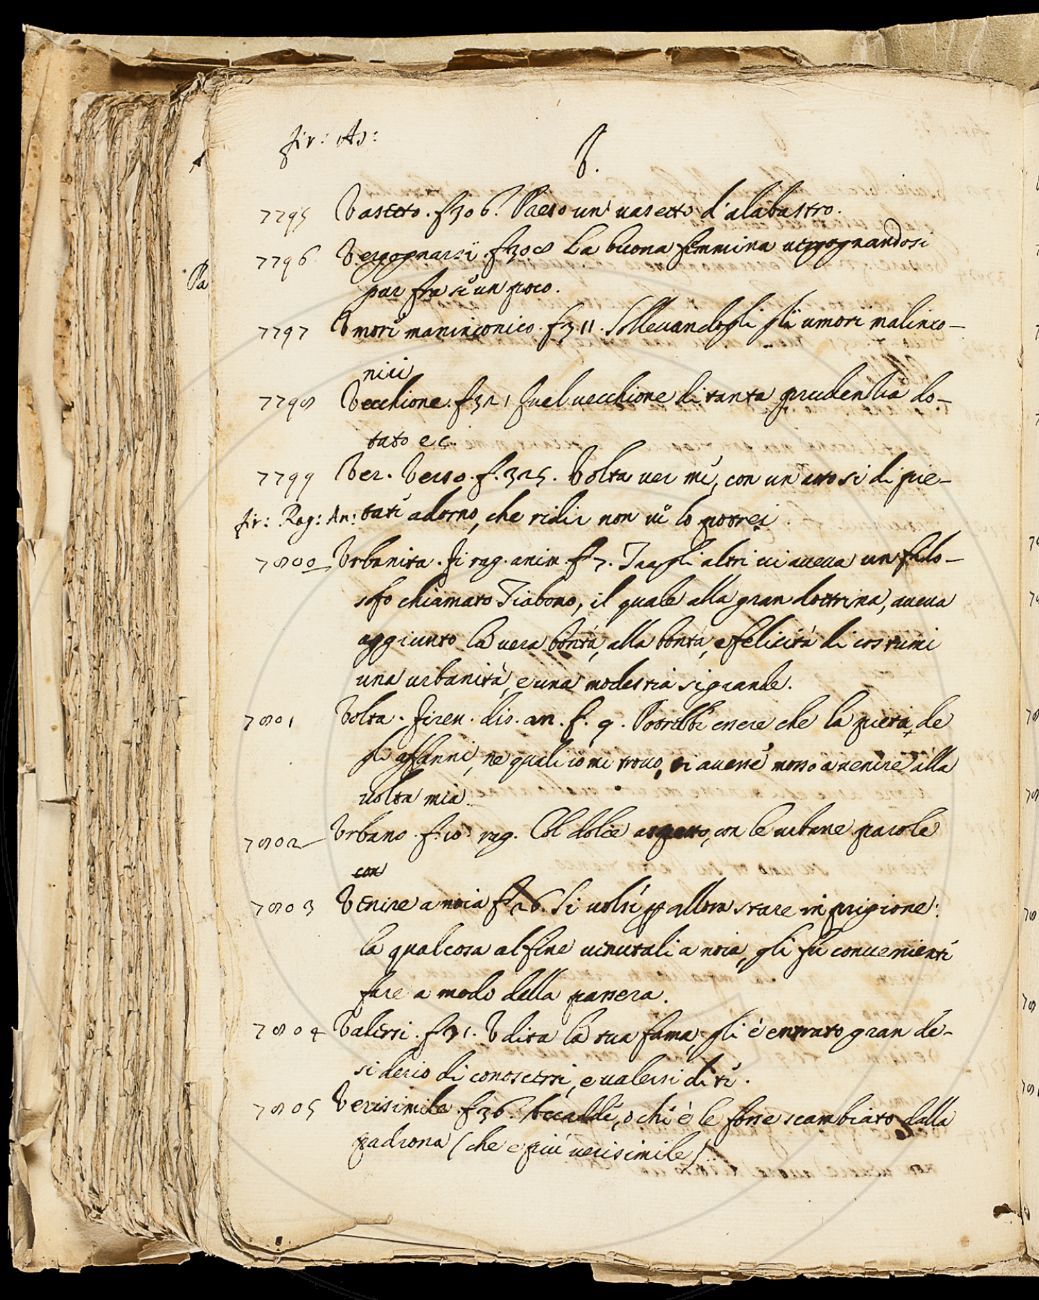 fir: As:
V.
7795 Vasetto. f 306. Preso un vasetto d'alabastro.
7796 Vergognarsi. f 308 La buona femmina vergognandosi
pur fra se un poco.
7797 Umori maninconico. f 311. Sollevandogli gli umori malinco-
nici
7798 Vecchione. f 321 quel vecchione di tanta prudentia do-
tato ec.
7799 Ver. Verso. f. 325. Volta ver me, con un atto si di pie-
fir: Rag: An: tate adorno, che ridir non ve lo potrei
7800 Urbanita. fi rag. anim f 7. Tra gli altri vi aveva un filo-
sofo chiamato Tiabono, il quale alla gran dottrina, aveva
aggiunto la vera bontà, alla bontà, e felicità di costumi
una urbanità, e una modestia si grande.
7801 Volta. firen. dis. an. f. 9. Potrebbe essere che la pietà, de
gli affanni, ne quali io mi trovo, vi avesse mosso a venire alla
volta mia
7802 Urbano. f 10. rag. Col dolce aspetto, con le urbane parole
con
7803 Venire a noia f 26. Si volse allora stare in prigione:
la qual cosa al fine venutali a noia, gli fu conveniente
fare a modo della passera.
7804 Valersi. f 31. Udita la tua fama, gli è entrato gran de-
siderio di conoscerti, e valersi di te.
7805 Verisimile. f 36. o chi è le forse scambiato dalla
padrona (che e più verisimile)
Pa